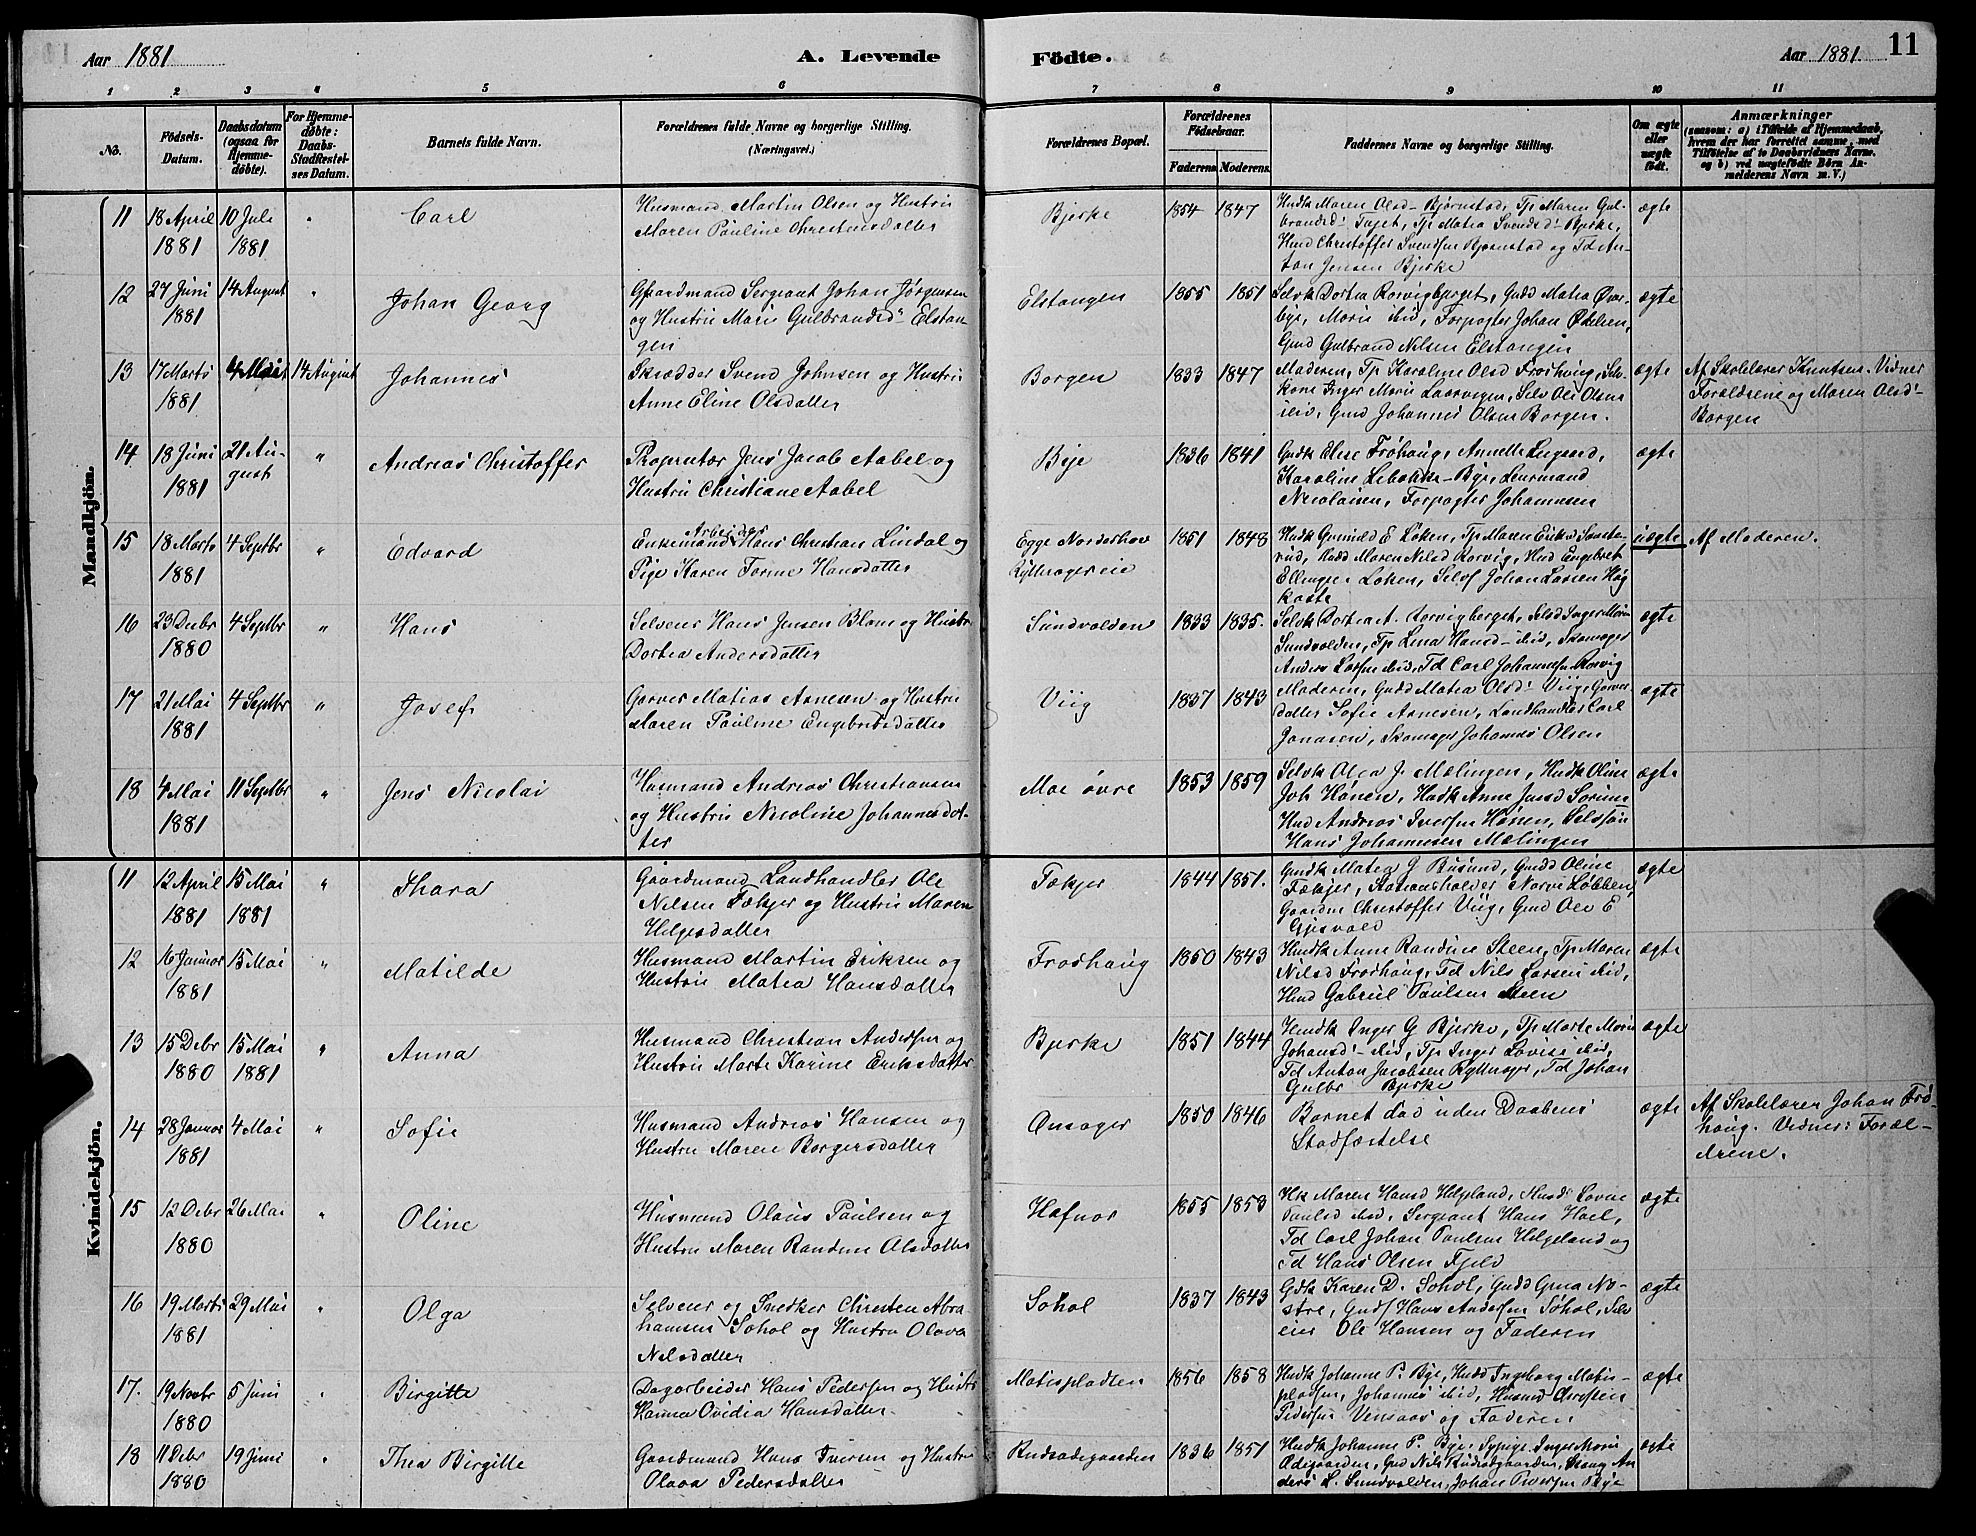 Aar 1881
A. Levende
Födte.
Aar 1881.
11
1 2 3 4 5 6 7 8 9 10 11
No.
Födsels-
Datum.
Daabsdatum
(ogsaa for
Hjemme-
døbte).
For Hjemme-
døbte:
Daabs-
Stadfæstel-
ses Datum.
Barnets fulde Navn.
Forældrenes fulde Navne og borgerlige Stilling.
(Næringsvei.)
Forældrenes Bopæl.
Forældrenes
Födselsaar.
Faderens. Moderens.
Faddernes Navne og borgerlige Stilling.
Om ægte
eller
uægte
födt.
Anmærkninger
(saasom: a) i Tilfælde af Hjemmedaab,
hvem der har forrettet samme, med
Tilföielse af to Daabsvidners Navne,
og b) ved uægtefödte Börn An-
melderens Navn m. V.)
Mandkjön.
11 18 April 10 Juli " Carl
1881 1881
Husmand Martin Olsen og Hustru
Maren Pauline Christensdatter
Bjerke 1854 1847
Hudk Maren Olsd- Bjørnstad, Tp Maren Gul-
brandsd- Taget, Tp Matea Svendsd- Bjerke,
Hmd Christoffer Svendsen Bjørnstad og Td An-
ton Jensen Bjerke
ægte
12 27 Juni 14 August " Johan Georg
1881
Gaardmand Sergeant Johan Jørgensen
og Hustru Marie Gulbrandsd- Elstan-
gen
Elstangen 1855 1851
Selvk Dortea Rorvigberget, Gudd Matea Over-
bye, Marie ibid, Forpagter Johan
Gmd Gulbrand Nilsen Elstangen
ægte
13 17 Marts 4 Mai 14 August Johannes
1881
Skrædder Svend Johnsen og Hustru
Anne Eline Olsdatter
Borgen 1833 1847
Moderen, Tp Karoline Olsd Frøshoug, Selv-
kone Inger Marie Selv Ole Olsen
Gmd Johannes Olsen Borgen.
ægte
Af Skolelærer Knutsen. Vidner
Forældrene og Maren Olsd-
Borgen
14 18 Juni 21 Au- " Andreas Christoffer
1881 gust
Proprietær Jens Jacob Aabel og
Hustru Christiane Aabel
Bye 1836 1841
Gudk Elise Frøhaug, Annette
Karoline Bye, Lensmand
Nicolaisen, Forpagter Johannesen
ægte
15 18 Marts 4 Septbr " Edvard
1881
Enkemand Arbeider Hans Christian Lindal og
Pige Karen Hansdatter
Egge Norderhov 1851 1848
Rytteragereie
Hudk Gunild E Løken, Tp Maren Eriksd
Hudd Maren Nilsd Rorvig, Hmd Engebret
Ellingsen Løken, Selvf Johan Larsen Høg
kaste
uægte
Af Moderen.
16 23 Decbr 4 Septbr " Hans
1880
Selveier Hans Jensen Blom og Hustru
Dortea Andersdatter
Sundvolden 1833 1835.
Selvk Dortea A. Rorvigberget, Selvd Inger Marie
Sundvolden, Tp Lina Hansd- ibid, Skomager
Anders Larsen ibid, Td Carl Johannesen Rorvig
ægte
17 21 Mai 4 Septbr " Josef
1881
Garver Matias Arnesen og Hustru
Maren Pauline Engebretsdatter
Viig 1837 1843
Moderen, Gudd Matea Olsd- Viig, Garver-
datter Sofie Arnesen, Landhandler Carl
Jonasen, Skomager Johannes Olsen
ægte
18 4 Mai 11 Septbr " Jens Nicolai
1881
Husmand Andreas Christiansen
og Hustru Nicoline Johannesdat-
ter
Moe øvre 1853 1859
Selvk Olea J. Mælingen, Hudk Oline
Joh Hønen, Hudk Anne Jensd Sorum
Hmd Andreas Iversen Hønen, Selvsøn
Hans Johannesen Mælingen
ægte
Kvindekjön.
11 12 April 15 Mai " Thara
1881 1881
Gaardmand Landhandler Ole
Nilsen Fækjer og Hustru Maren
Helgesdatter
Fækjer 1844 1851.
Gmdk Matea G Busund, Gmdd Oline
Fækjer, Stationsholder Narve Løbben,
Gaardm Christoffer Viig, Gmd Ole E
Gjesvold
ægte
12 16 Januar 15 Mai " Matilde
1881
Husmand Martin Eriksen og
Hustru Matea Hansdatter
Frøshaug 1850 1843
Hmdk Anne Randine Steen, Tp Maren
Nilsd Frøshaug, Td Nils Larsen ibid,
Hmd Gabriel Paulsen Steen
ægte
13 15 Debr 15 Mai " Anna
1880 1881
Husmand Christian Andersen og
Hustru Marte Karine Eriksdatter
Bjerke 1851 1844
Hmdk Inger G Bjerke, Tp Marte Marie
Johansd- ibid, Tp Inger Lovise ibid,
Td Anton Jacobsen Rytterager, Td Johan
Gulbr Bjerke
ægte
14 28 Januar 4 Mai " Sofie
1881
Husmand Andreas Hansen og
Hustru Maren Borgersdatter
Onsager 1850 1846
Barnet død uden Daabens
Stadfæstelse
ægte
Af Skolelærer Johan Frø-
haug. Vidner: Foræl-
drene.
15 12 Debr 26 Mai " Oline
1880
Husmand Olaus Paulsen og
Hustru Maren Randine Olsdatter
Hafnor 1855 1858
Hk Maren Hansd Helgeland, Husd- Lovise
Paulsd ibid, Sergeant Hans Hoel,
Td Carl Johan Paulsen Helgeland og
Td Hans Olsen Fjeld
ægte
16 19 Marts 29 Mai " Olga
1881
Selveier og Snedker Christen Abra-
hamsen Sohol og Hustru Olava
Nilsdatter
Sohol 1837 1843
Gdk Karen D. Sohol, Gudd Gina No-
stre, Gmdf Hans Andersen Sohol, Selv
eier Ole Hansen og Faderen
ægte
17. 19 Novbr 5 Juni " Birgitte
1880
Dagarbeider Hans Pedersen og Hustru
Hanna Ovidia Hansdatter
Matispladsen 1856 1858
Hudk Johanne P. Bye, Hudd Ingeborg Matis-
pladsen, Johannes ibid, Husmd Christen
Pedersen Vensaas og Faderen
ægte
18 11 Debr 19 Juni " Thea Birgitte
1880
Gaardmand Hans Iversen og Hustru
Olava Pedersdatter
Rudsødegaarden 1836 1851
Hudk Johanne P. Bye, Sypige Inger Marie
Ødegaarden, Gmd Nils Rudsødegaarden, An
ders L. Sundvolden, Johan Pedersen Bye
ægte